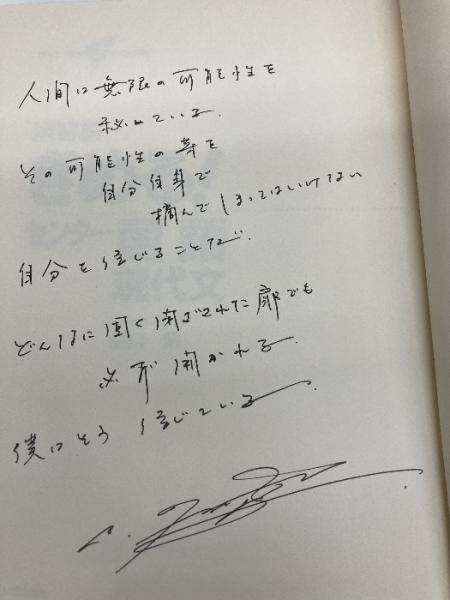 人間は無限の可能性を
秘めている.
その可能性の芽を
自分自身で
摘んでしまってはいけない
自分を信じることだ.
どんなに固く閉ざされた扉でも
必ず開かれる.
僕はそう信じている.
センター
現代文